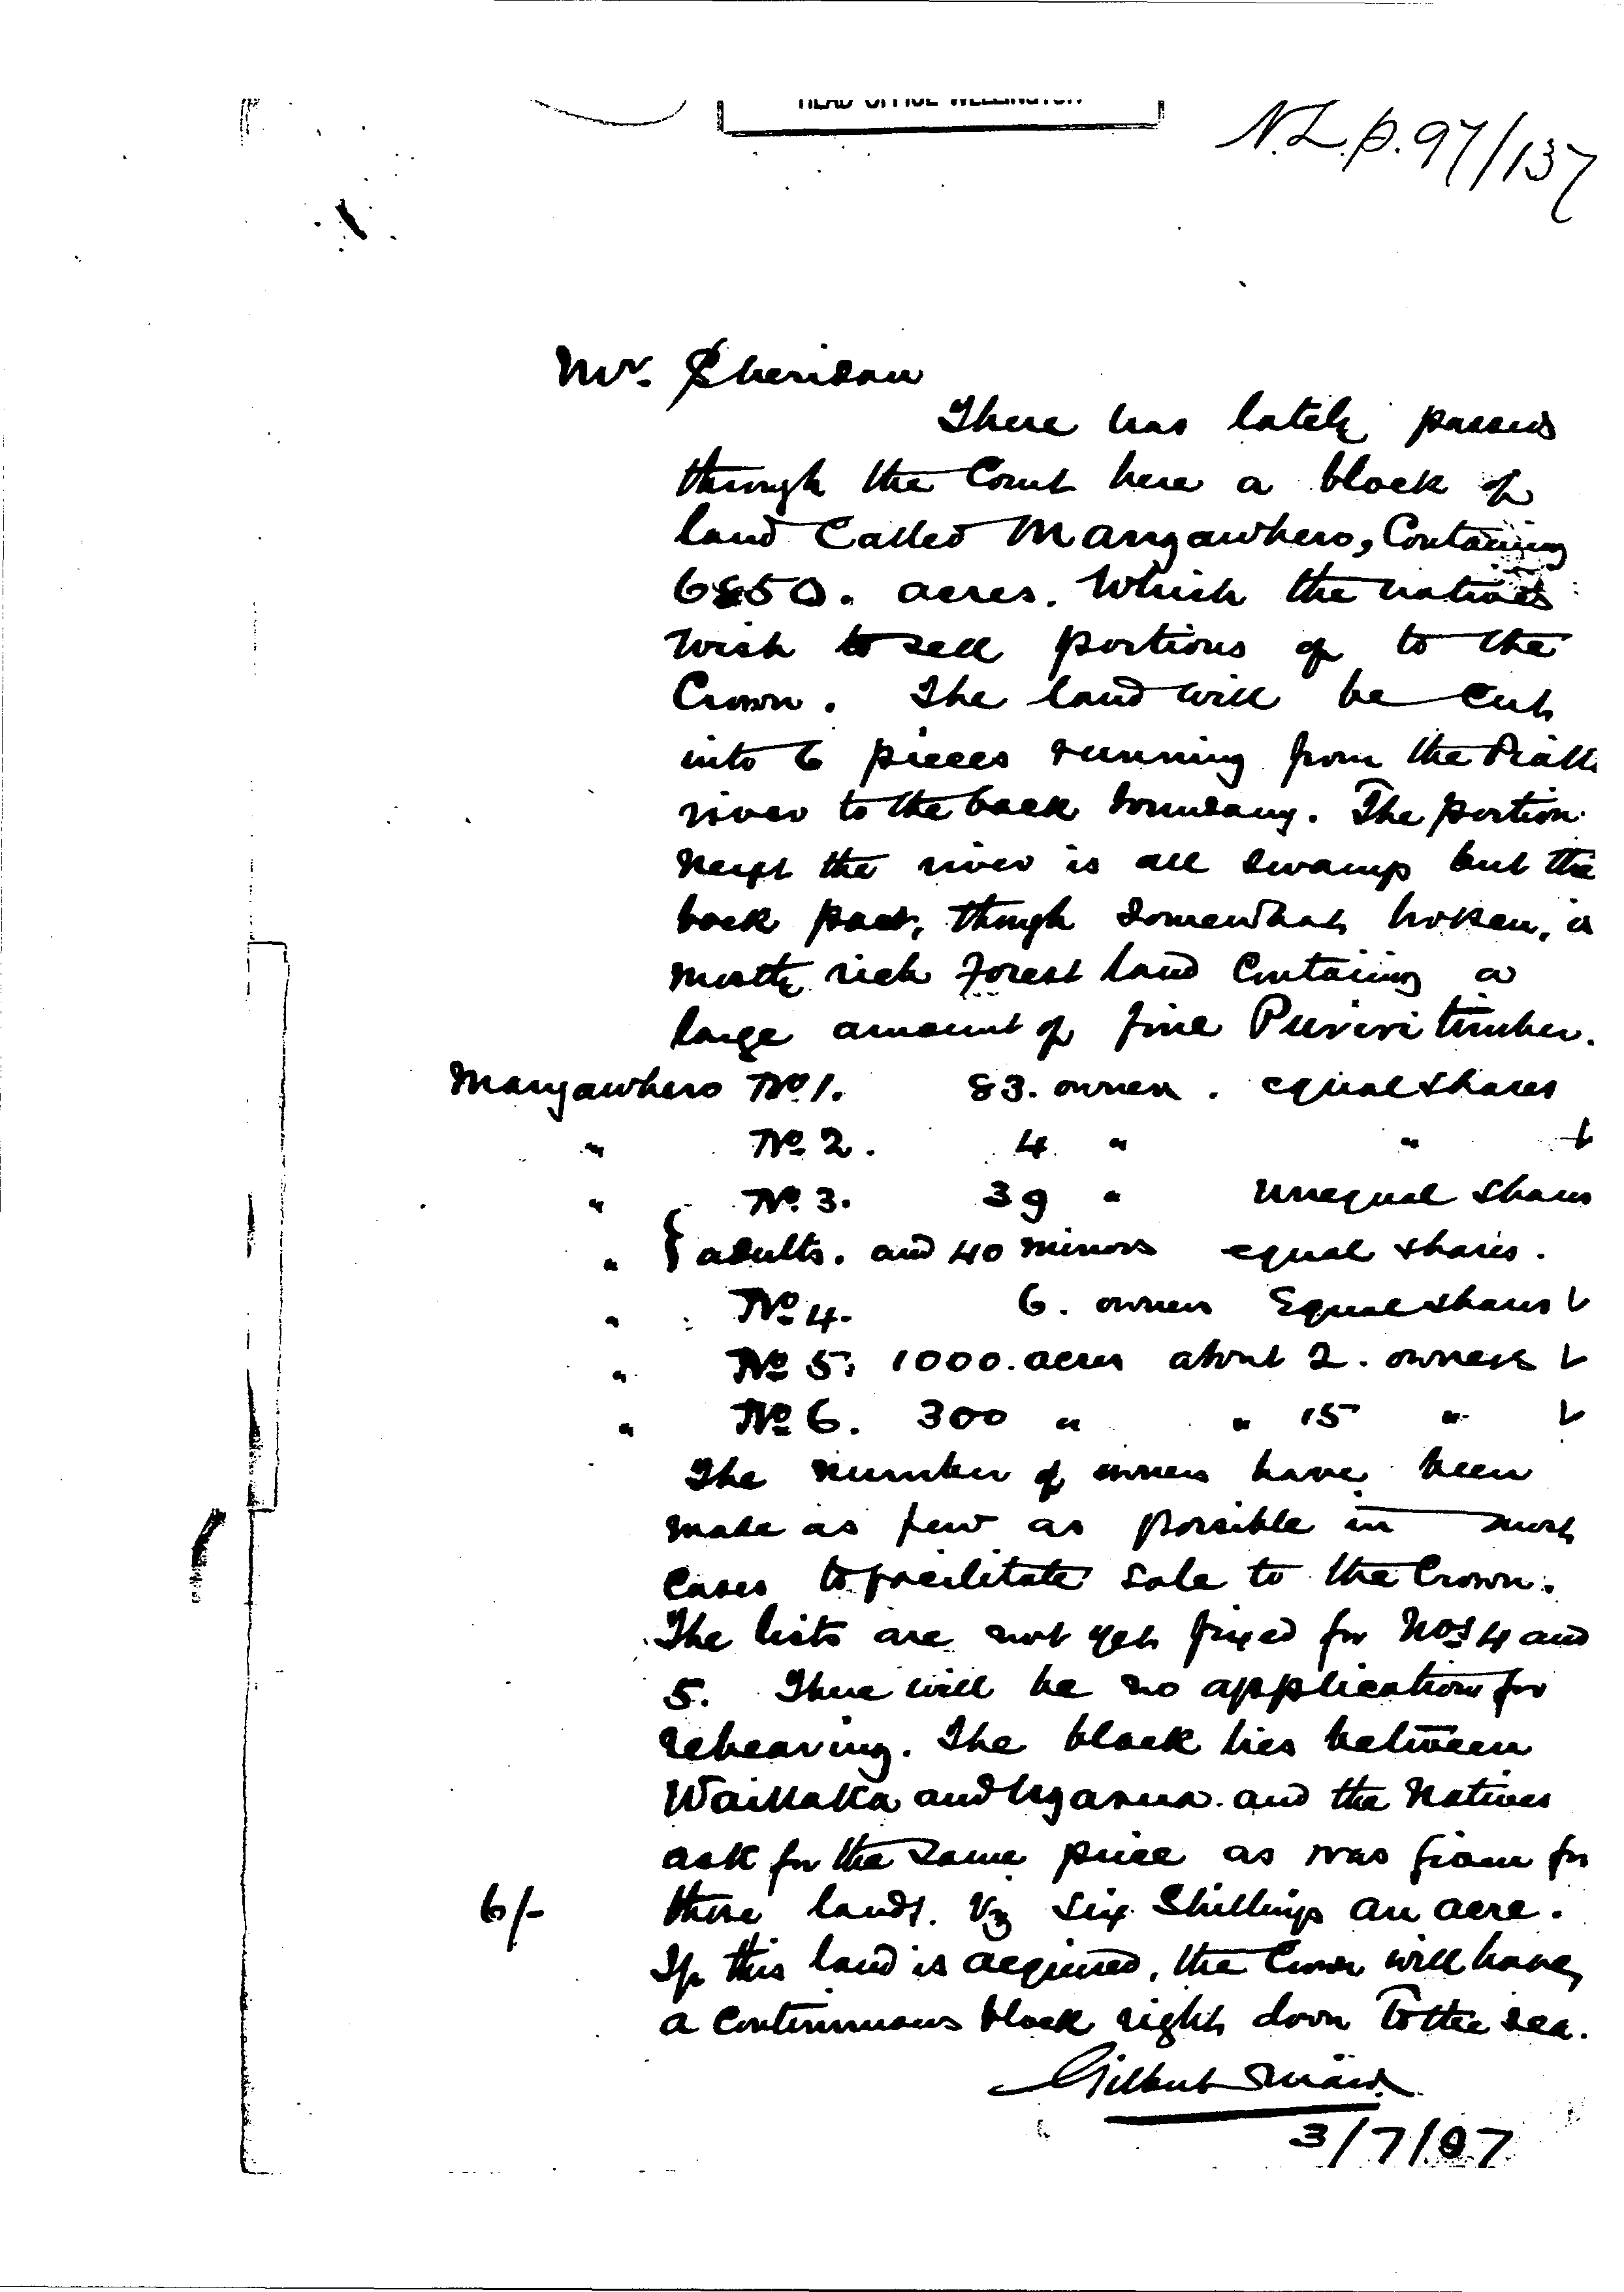 HEAD OFFICE WELLINGTON
N.L.P. 97/137
Mr. Sheridan
There has lately passed
through the Court here a block of
land called Mangawhero, Containing
acres. Which the natives
wish to sell portions of to the
Crown. The land will be cut
into 6 pieces running from the Piako
river to the back boundary. The portion
next the river is all swamp but the
back part, though somewhat broken, is
mostly rich forest land containing a
large amount of fine Puriri timber.
Mangawhero No 1. 83. owners. equal shares
" No 2. 4 " "
" No. 3. 39 " unequal shares
" { adults. and 40 minors equal shares.
" No 4. 6. owners Equal shares
" No 5. 1000. acres about 2. owners
" No 6. 300 " " 15 "
The number of owners have been
made as few as possible in most
cases to facilitate sale to the Crown.
The lists are not yet fixed for Nos 4 and
5. There will be no application for
rehearing. The block lies between
Waikaka and Ngarua. and the Natives
ask for the same price as was given for
6/- those lands. Vz Six Shillings an acre.
If this land is acquired, the Crown will have
a continuous block right down to the sea.
Gilbert Mair
3/7/97